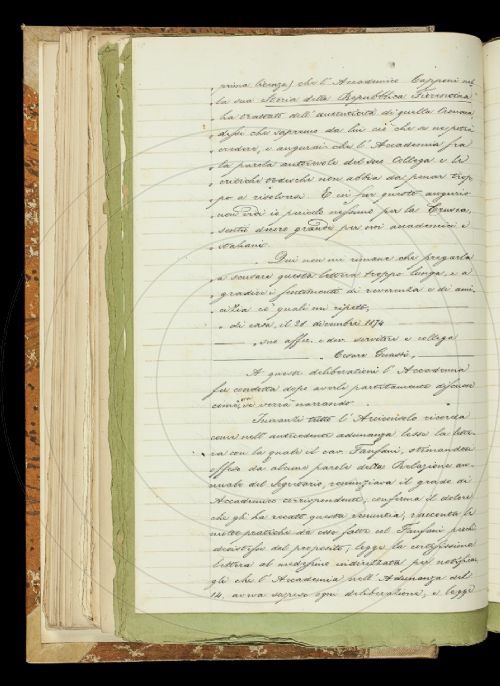 „ prima licenza) che l'Accademico Capponi nel-
„ la sua Storia della Repubblica Fiorentina
„ ha trattato dell'autenticità di quella Cronaca
„ disse che sapremo da lui ciò che se ne potrà
„ credere, e augurai che l'Accademia fra
„ la parola autorevole del suo Collega e le
„ critiche tedesche non abbia da penar trop-
„ po a risolversi. E in far questo augurio
„ non vidi io pericolo nessuno per la Crusca,
„ sentii decoro grande per noi accademici e
„ italiani.
„ Qui non mi rimane che pregarla
„ a scusare questa lettera troppo lunga, e a
„ gradire i sentimenti di reverenza e di ami-
„ cizia co' quali mi ripeto,
„ di casa, il 21 dicembre 1874
„ suo affez. e dev. servitore e collega
Cesare Guasti „
A queste deliberazioni l'Accademia
fu condotta dopo averle partitamente discusse
come ora si verrà narrando.
Innanzi tutto l'Arciconsolo ricorda
come nell'antecedente adunanza lesse la lette-
ra con la quale il cav. Fanfani, stimandosi
offeso da alcune parole della Relazione an-
nuale del Segretario, renunziava il grado di
Accademico corrispondente, conferma il dolore
che gli ha recato questa renunzia, racconta le
nuove pratiche da esso fatte col Fanfani perchè
desistesse dal proposito, legge la cortesissima
lettera al medesimo indirizzata per notificar-
gli che l'Accademia nell'Adunanza del
14 aveva sospeso ogni deliberazione, e legge